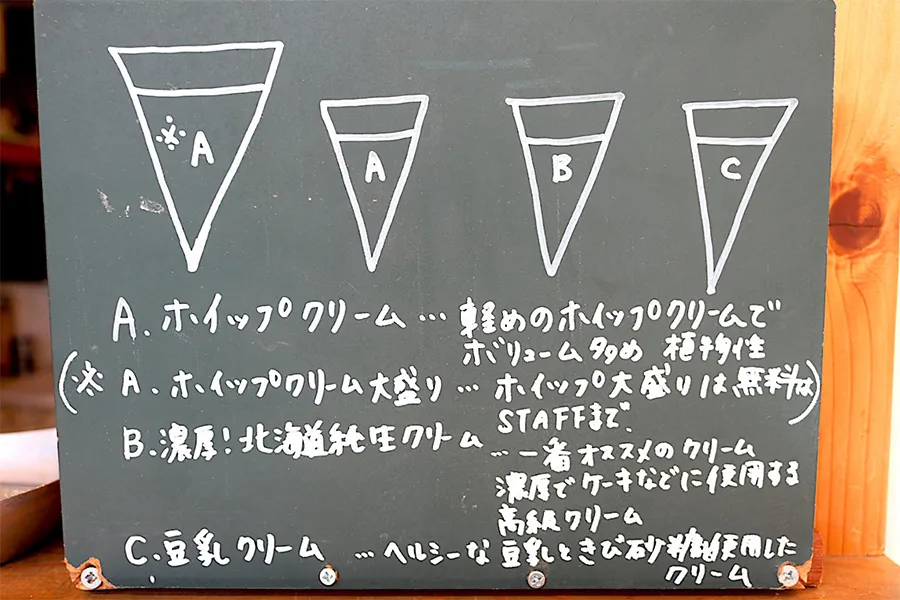 ※ A
A
B
C
A. ホイップクリーム … 軽めのホイップクリームで
ボリューム多め 植物性
(※ A. ホイップクリーム大盛り … ホイップ大盛りは無料は)
STAFFまで、
B. 濃厚!北海道純生クリーム
… 一番オススメのクリーム
濃厚でケーキなどに使用する
高級クリーム
C. 豆乳クリーム … ヘルシーな豆乳ときび砂糖使用した
クリーム